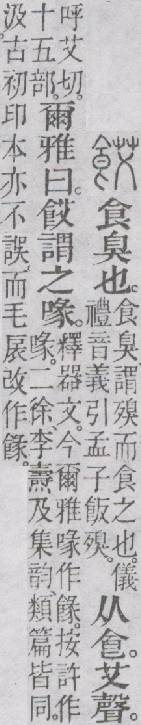 餀 食臭也。
食臭謂殠而食之也。儀
禮音義引孟子飯殠。
从食。艾聲。
呼艾切。
十五部。
爾雅曰。餀謂之喙。
釋器文。今爾雅喙作餯。按許作
喙。二徐、李燾及集韵、類篇皆同。
汲古初印本亦不誤。而毛扆改作餯。